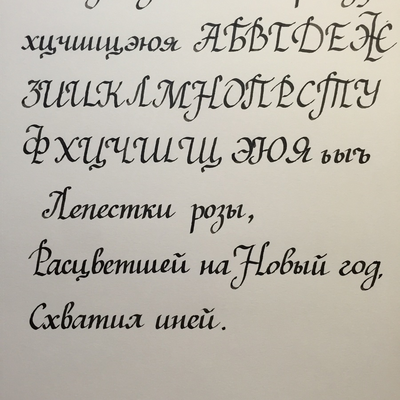 хцчшщэюя АБВГДЕЖ
ЗИЙКЛМНОПРСТУ
ФХЦЧШЩ ЭЮЯ ьыъ
Лепестки розы,
Расцветшей на Новый год,
Схватил иней.